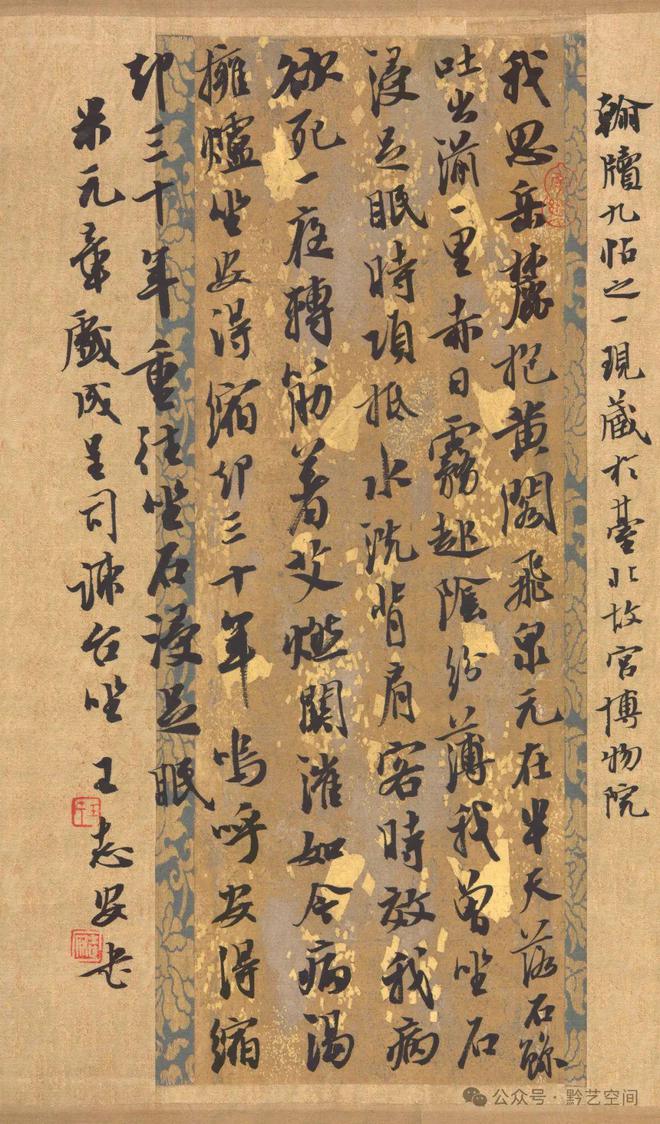 翰牘九帖之一現藏於臺北故宮博物院
我思岳麓抱黄閣飛泉元在半天落石鯨
吐出湔一里赤日霧起陰紛薄我曾坐石
浸足眠時項抵水洗背肩客時效我病
欲死一夜轉筋着艾燃關灌如今病渴
擁爐坐安得縮却三十年嗚呼安得縮
却三十年重往坐石浸足眠
米元章戲成呈司諫台坐 王志安书
公众号·黔艺空间